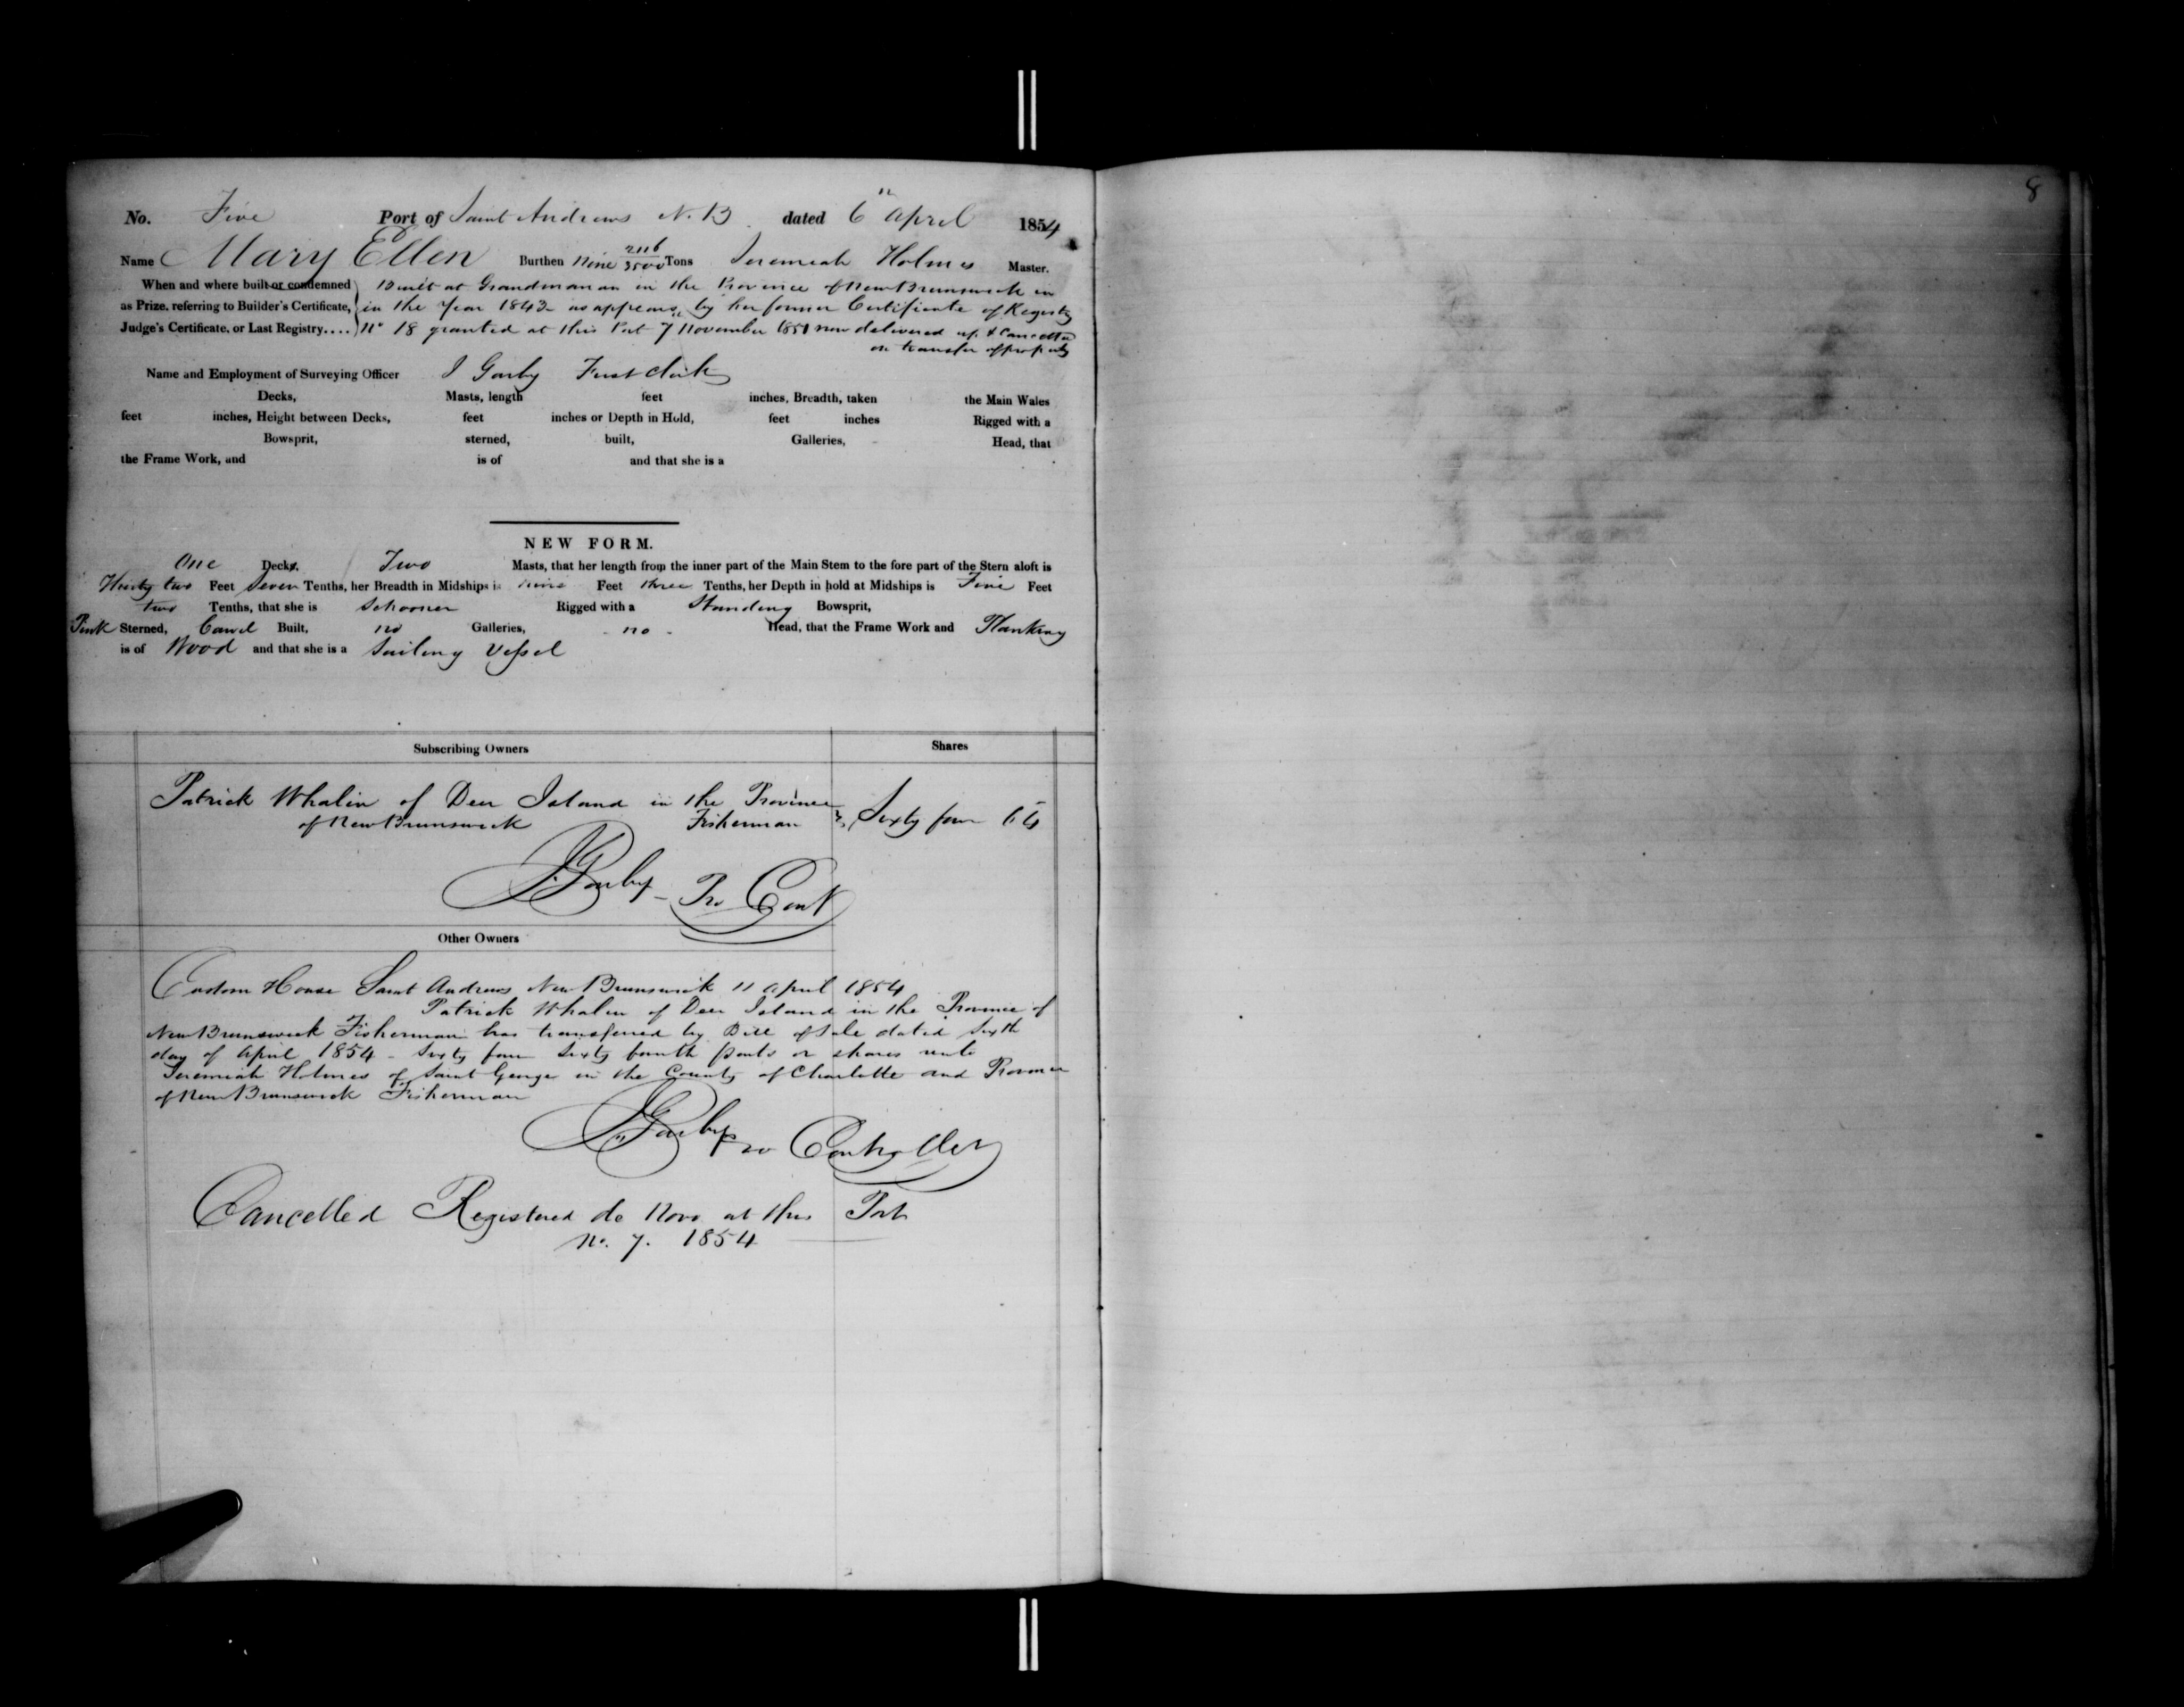 8
No. Five Port of Saint Andrews N. B dated 6" April 1854
Name Mary Ellen Burthen Nine 2116/3500 Tons Jeremiah Holmes Master.
When and where built or condemned Built at Grandmanan in the Province of New Brunswick in
as Prize, referring to Builder's Certificate, in the Year 1843 as appears by her former Certificate of Registry
Judge's Certificate, or Last Registry.... No 18 granted at this Port 7 November 1851 now delivered up & Cancelled
on transfer of property
Name and Employment of Surveying Officer J Garby First Clerk
Decks, Masts, length feet inches, Breadth, taken the Main Wales
feet inches, Height between Decks, feet inches or Depth in Hold, feet inches Rigged with a
Bowsprit, sterned, built, Galleries, Head, that
the Frame Work, and is of and that she is a
NEW FORM.
One Decks. Two Masts, that her length from the inner part of the Main Stem to the fore part of the Stern aloft is
Thirty two Feet Seven Tenths, her Breadth in Midships is nine Feet three Tenths, her Depth in hold at Midships is Five Feet
two Tenths, that she is Schooner Rigged with a Standing Bowsprit,
Pink Sterned, Carvel Built, no Galleries, no Head, that the Frame Work and Planking
is of Wood and that she is a Sailing Vessel
Subscribing Owners Shares
Patrick Whalin of Deer Island in the Province
of New Brunswick Fisherman Sixty four 64
J. Garby Pro Cont
Other Owners
Custom House Saint Andrews New Brunswick 11 April 1854
Patrick Whalin of Deer Island in the Province of
New Brunswick Fisherman has transferred by Bill of Sale dated Sixth
day of April 1854 - Sixty four Sixty fourth parts or shares unto
Jeremiah Holmes of Saint George in the County of Charlotte and Province
of New Brunswick Fisherman
J. Garby Pro Controller
Cancelled Registered de Novo at this Port
No. 7. 1854